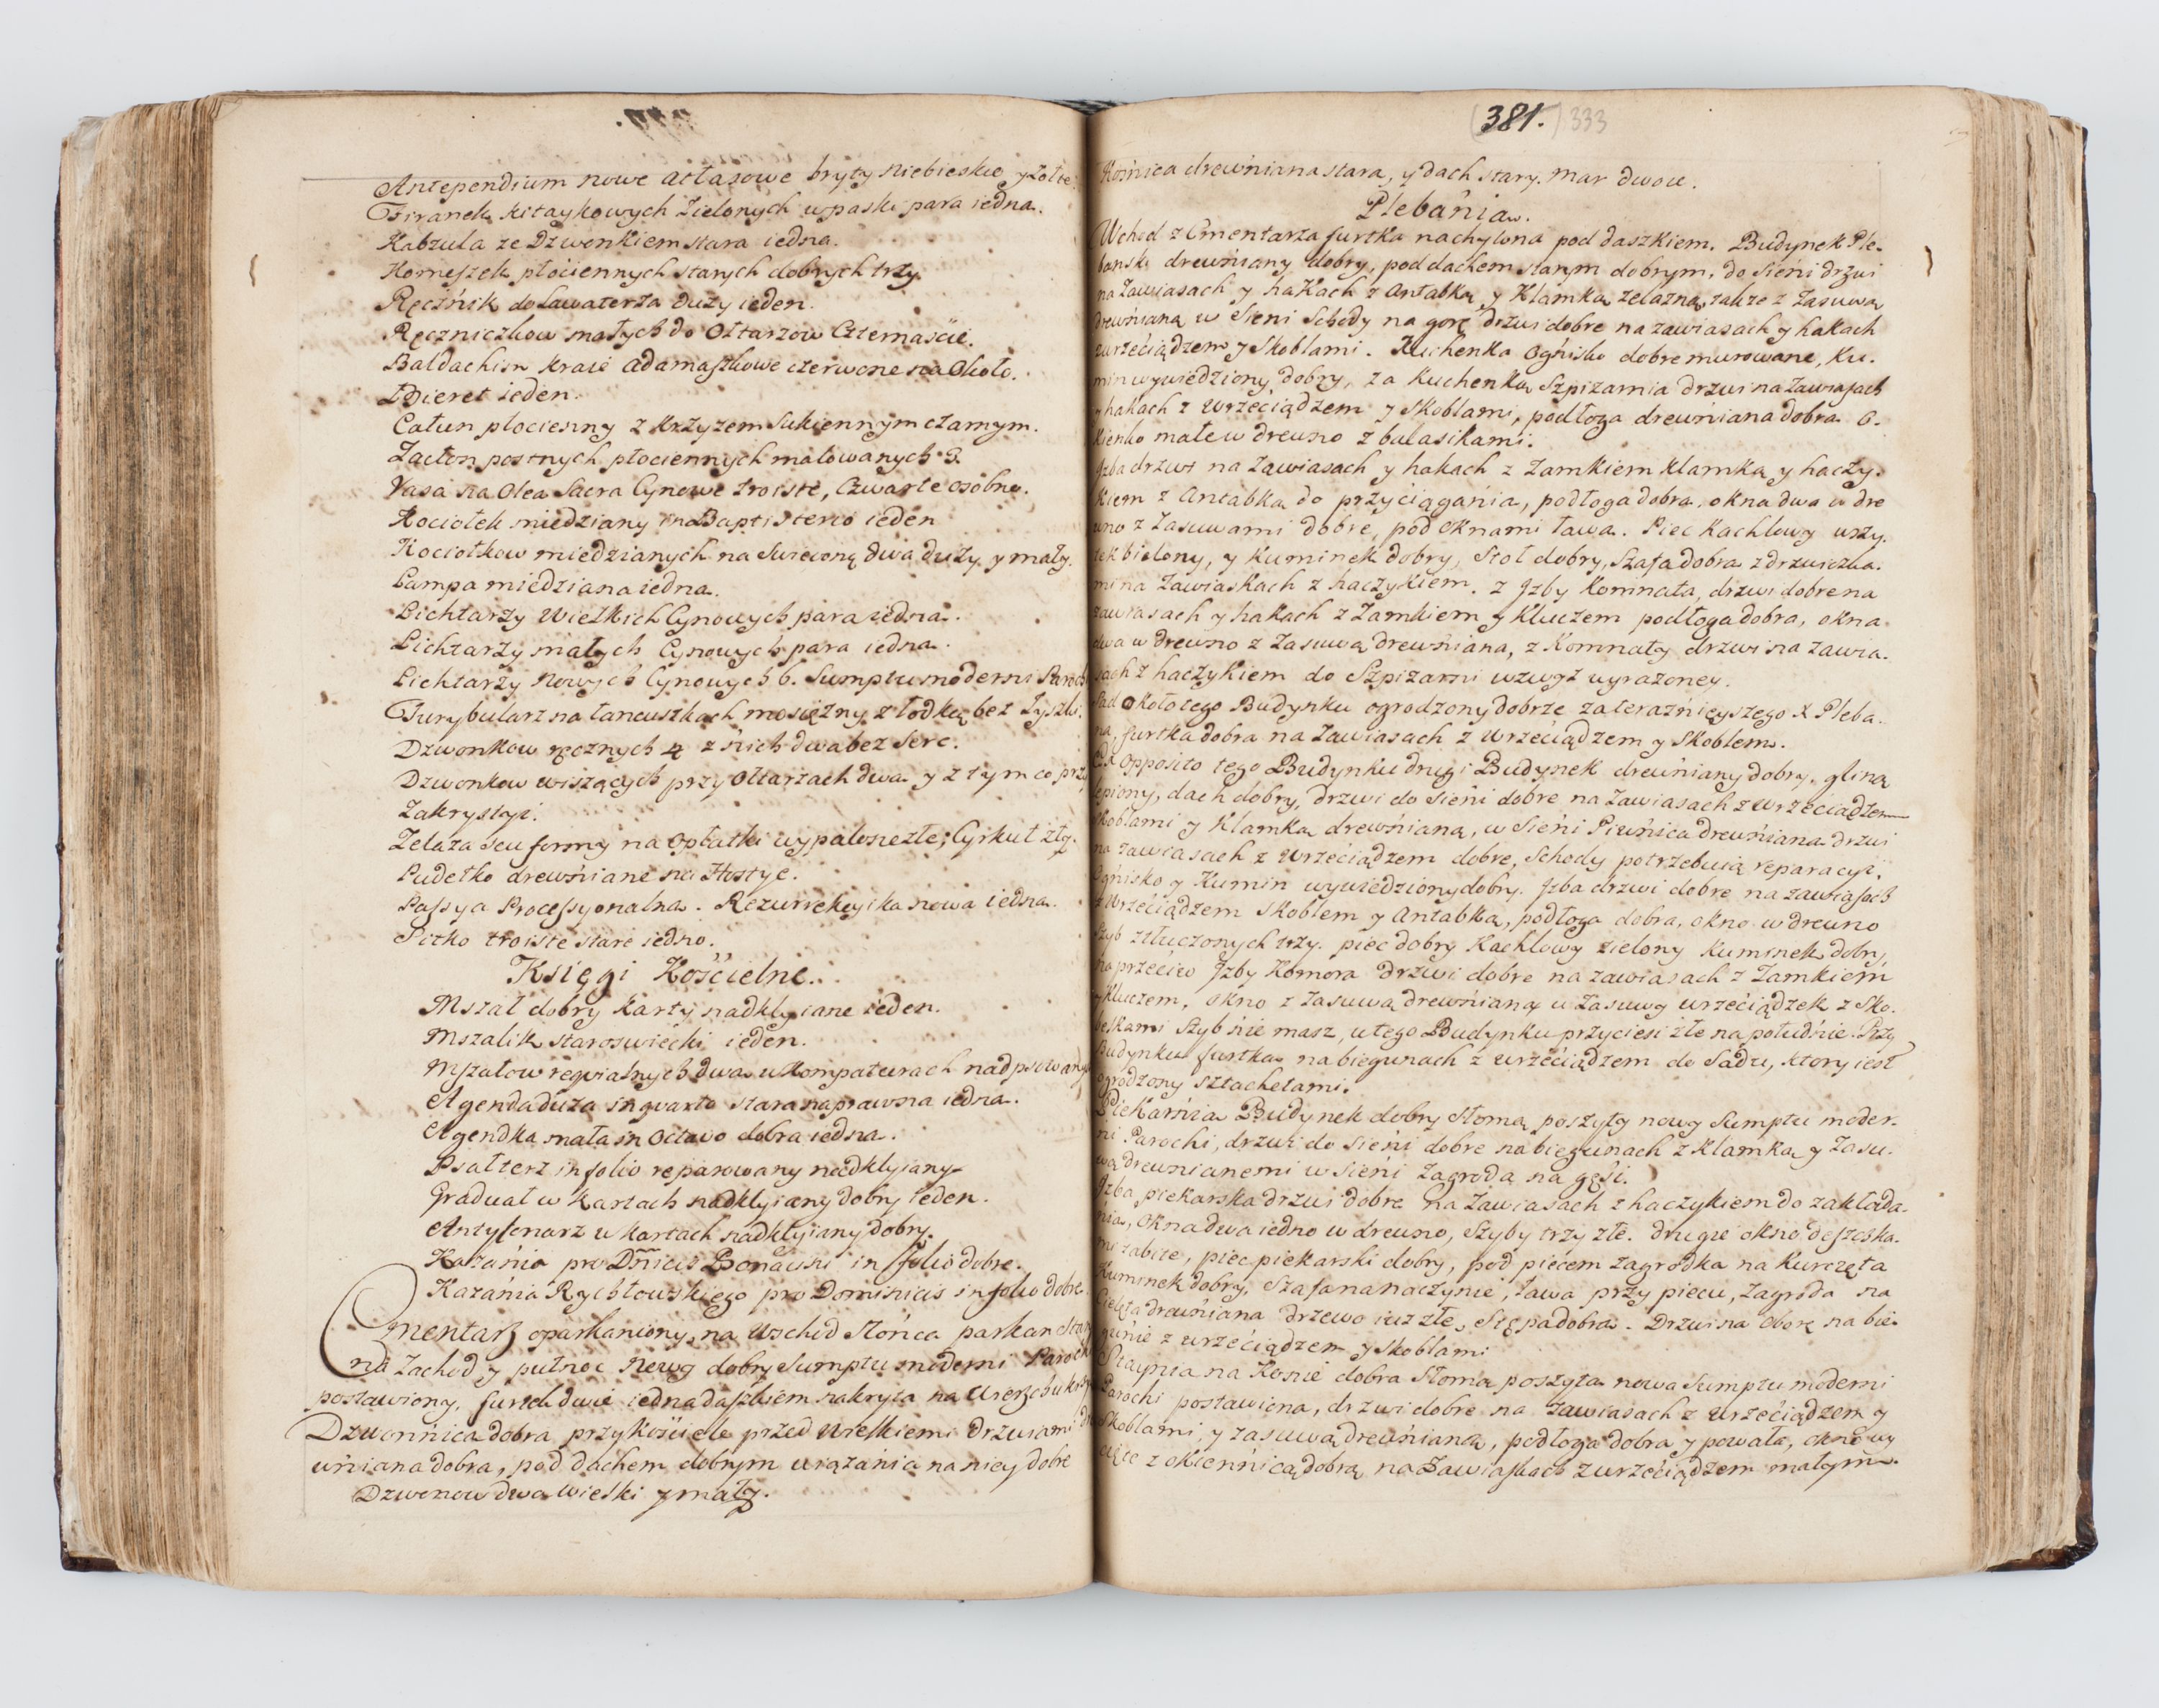 Antependium nowe atłasowe bryty niebieskie y żołte.
Firanek kitaykowych zielonych w paski para iedna.
Kabzula ze Dzwonkiem stara iedna.
Komeszek płóciennych starych dobrych trzy.
Ręcznik do Lawaterza duzy ieden.
Ręczniczkow małych do Ołtarzow Czternaście.
Baldachim kraie adamaszkowe czerwone na Około.
Bieret ieden.
Całun płocienny z Krzyzem Sukiennym czarnym.
Zasłon postnych płociennych malowanych 3.
Vasa na Olea Sacra Cynowe troiste, Czwarte osobno.
Kociołek miedziany in Baptisterio ieden
Kociołkow miedzianych na Swięconą dwa duży y mały.
Lampa miedziana iedna.
Lichtarzy Wielkich Cynowych para iedna.
Lichtarzy małych Cynowych para iedna.
Lichtarzy Nowych Cynowych 6. Sumptu moderni Paroch
Turybularz na łancuszkach mosiężny z łodką bez Łyszki.
Dzwonkow ręcznych 4 z nich dwa bez Serc.
Dzwonkow wiszących przy Ołtarzach dwa y z tym co przy
Zakrystyi.
Zelaza seu formy na Opłatki wypalone złe; Cyrkuł zły.
Pudełko drewniane na Hostye.
Passya Processyonalna. Rezurrekcyika nowa iedna.
Sitko troiste stare iedno.
Księgi Kościelne.
Mszał dobry karty nadklyiane ieden.
Mszalik staroswiecki ieden.
Mszałow reqvialnych dwa w Kompaturach nadpsowanych
Agenda duża in qvarto stara naprawna iedna.
Agendka mała in Octavo dobra iedna.
Psałterz in folio reparowany nadklyiany.
Graduał w Kartach nadklyiany dobry ieden.
Antyfonarz w Kartach nadklyiany dobry.
Kazania pro Dnicis in folio dobre.
Kazánia Rychłowskiego pro Dominicis in folio dobre.
Cmentarz oparkaniony, na Wschod Słońca parkan stary
na Zachod y pułnoc Nowy dobry Sumptu moderni Parochi
postawiony, furtek dwie iedna daszkiem nakryta na Wierzchu
Dzwonnica dobra przy Kościele przed Wielkiemi Drzwiami dre
wniana dobra, pod dachem dobrym wiązánia na niey dobre
Dzwonow dwa wielki y mały.
(381.) 333
Kośnica drewniana stara, y dach stary. Mar dwoie.
Plebánia.
Wchod z Cmentarza furtka nachylona pod daszkiem. Budynek Ple-
banski drewniany dobry, pod dachem starym dobrym, do Sieni drzwi
na Zawiasach y hakach z Antabką y Klamką zelazną, także z Zasuwą
drewnianą w Sieni Schody na gorę drzwi dobre na zawiasach y hakach
z wrzeciądzem y Skoblami. Kuchenka Ognisko dobre murowane, Ku-
min wywiedziony dobry, za Kuchenką Szpizarnia drzwi na Zawiasach
y hakach z Wrzeciądzem y Skoblami, podłoga drewniana dobra. O-
kienko małe w drewno z balasikami.
Izba drzwi na Zawiasach y hakach z Zamkiem klamką y haczy-
kiem z Antabką do przyciągánia, podłoga dobra, okna dwa w dre
wno z Zasuwami dobre, pod Oknami ława. Piec Kachlowy wszy-
tek bielony, y Kuminek dobry, Stoł dobry, Szafa dobra z drzwiczka-
mi na Zawiaskach z haczykiem. z Izby Komnata, drzwi dobre na
zawiasach y hakach z Zamkiem y Kluczem podłoga dobra, okna
dwa w drewno z Zasuwą drewniana, z Komnaty drzwi na zawia-
sach z haczykiem do Szpizarni wzwyż wyrażoney.
Sad około tego Budynku ogrodzony dobrze za teraznieyszego X Pleba-
na, furtka dobra na Zawiasach z Wrzeciądzem y Skoblem.
Opposito tego Budynku drugi Budynek drewniany dobry, gliną
lepiony, dach dobry, drzwi do Sieni dobre na Zawiasach z Wrzeciądzem
Skoblami y Klamką drewnianą, w Sieni Piwnica drewniana drzwi
na zawiasach z Wrzeciądzem dobre, Schody potrzebuią reparacyi.
Ognisko y Kumin wywiedziony dobry. Izba drzwi dobre na zawiasach
z Wrzeciądzem Skoblem y Antabką, podłoga dobra, okno w drewno
Szyb ztłuczonych trzy. piec dobry Kachlowy zielony Kuminek dobry,
na przeciw Izby Komora drzwi dobre na zawiasach z Zamkiem
y Kluczem, okno z Zasuwą drewnianą u Zasuwy wrzeciądzek z Sko-
belkami Szyb nie masz, u tego Budynku przyciesi złe na południe. Przy
Budynku furtka na biegunach z wrzeciądzem do Sadu, ktory iest
ogrodzony sztachetami.
Piekarnia Budynek dobry słomą poszyty nowy Sumptu moder-
ni Parochi, drzwi do Sieni dobre na biegunach z Klamką y Zasu-
wą drewnianemi w Sieni Zagroda na gęsi.
Izba piekarska drzwi dobre na Zawiasach z haczykiem do zakłada-
nia, Okna dwa iedno w drewno, Szyby trzy złe. drugie okno deszczka-
mi zabite, piec piekarski dobry, pod piecem zagrodka na Kurczęta
Kuminek dobry, Szafa na naczynie, ława przy piecu, Zagroda na
Cielęta drewniana drzewo iuz złe, Stępa dobra. Drzwi na Oborę na bie-
gunie z wrzeciądzem y Skoblami
Staynia na Konie dobra Słomą poszyta nowa Sumptu moderni
Parochi postawiona, drzwi dobre na zawiasach z Wrzeciądzem y
Skoblami, y zasuwą drewnianą, podłoga dobra y powała, okno wy
cięte z okiennicą dobrą na Zawiasach z wrzeciądzem małym.